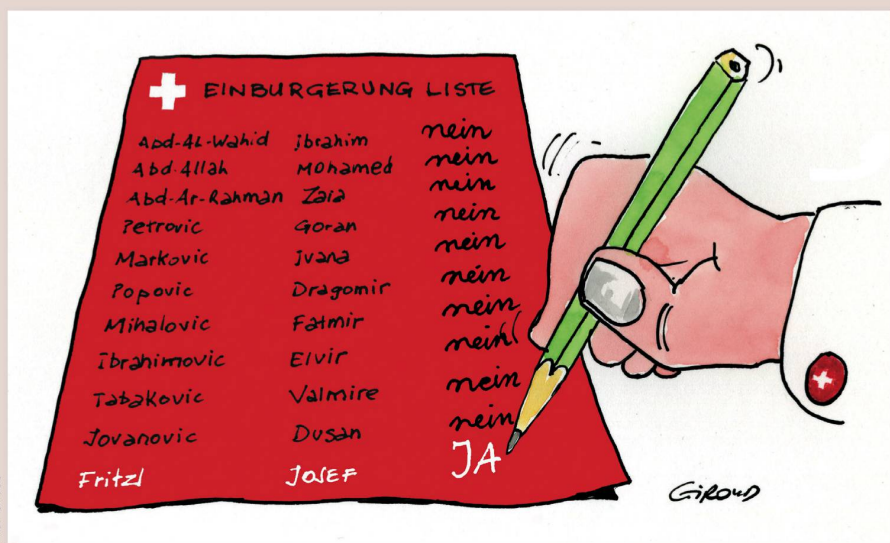 EINBURGERUNG LISTE
Abd-AL-Wahid ibrahim nein
Abd-Allah Mohamed nein
Abd-Ar-Rahman Zaia nein
Petrovic Goran nein
Markovic ivana nein
Popovic Dragomir nein
Mihalovic Fatmir nein
Ibrahimovic Elvir nein
Tabakovic Valmire nein
Jovanovic Dusan nein
Fritzl JOSEF JA
GIROUD